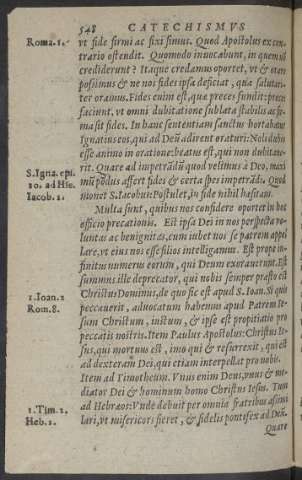 548 CATECHISMVS
Roma. 1. vt fide firmi ac fixi simus. Quod Apostolus ex con
trario ostendit. Quomodo inuocabunt, in quem nō
crediderunt? Itaque credamus oportet, vt & orare
possimus & ne nos fides ipsa deficiat, quæ salutari-
ter oramus. Fides enim est, quæ preces fundit: preces
faciunt, vt omni dubitatione sublata stabilis ac fir
ma sit fides. In hanc sententiam sanctus hortabatur
Ignatius eos, qui ad Deū adirent oraturi: Noli dubio
esse animo in oratione: beatus est, qui non dubitaue-
S. Igna. epi. rit. Quare ad impetrādū quod velimus à Deo, maxi
10. ad Hie. mū pōdus affert fides & certa spes impetrādi. Quod
Iacob. 1. monet S. Iacobus: Postulet, in fide nihil hæsitans.
Multa sunt, quibus nos confidere oportet in hoc
officio precationis. Est ipsa Dei in nos perspecta vo-
luntas ac benignitas, cum iubet nos se patrem appel
lare, vt eius nos esse filios intelligamus. Est prope in-
finitus numerus eorum, qui Deum exorauerunt. Est
summus ille deprecator, qui nobis semper præsto est
1. Ioan. 2 Christus Dominus, de quo sic est apud S. Ioan. Si quis
Rom. 8. peccauerit, aduocatum habemus apud Patrem Ie-
sum Christum, iustum, & ipse est propitiatio pro
peccatis nostris. Item Paulus Apostolus: Christus Ie-
sus, qui mortuus est, imo qui & resurrexit, qui est
ad dexteram Dei, qui etiam interpellat pro nobis.
Item ad Timotheum. Vnus enim Deus, vnus & me-
diator Dei & hominum homo Christus Iesus. Tum
1. Tim. 2. ad Hebræos: Vnde debuit per omnia fratribus assimi
Heb. 2. lari, vt misericors fieret, & fidelis pontifex ad Deū.
Quare